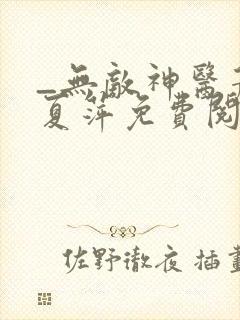 無敵神醫
夏萍免費閱
佐野徹夜 插畫